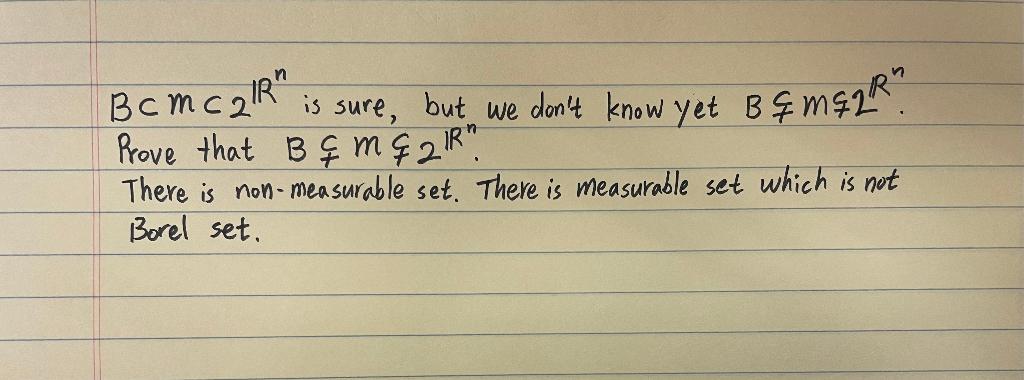 B ⊂ m ⊂ 2^ℝ^n is sure, but we don't know yet B ⊊ m ⊊ 2^ℝ^n.
Prove that B ⊊ m ⊊ 2^ℝ^n.
There is non-measurable set. There is measurable set which is not
Borel set.